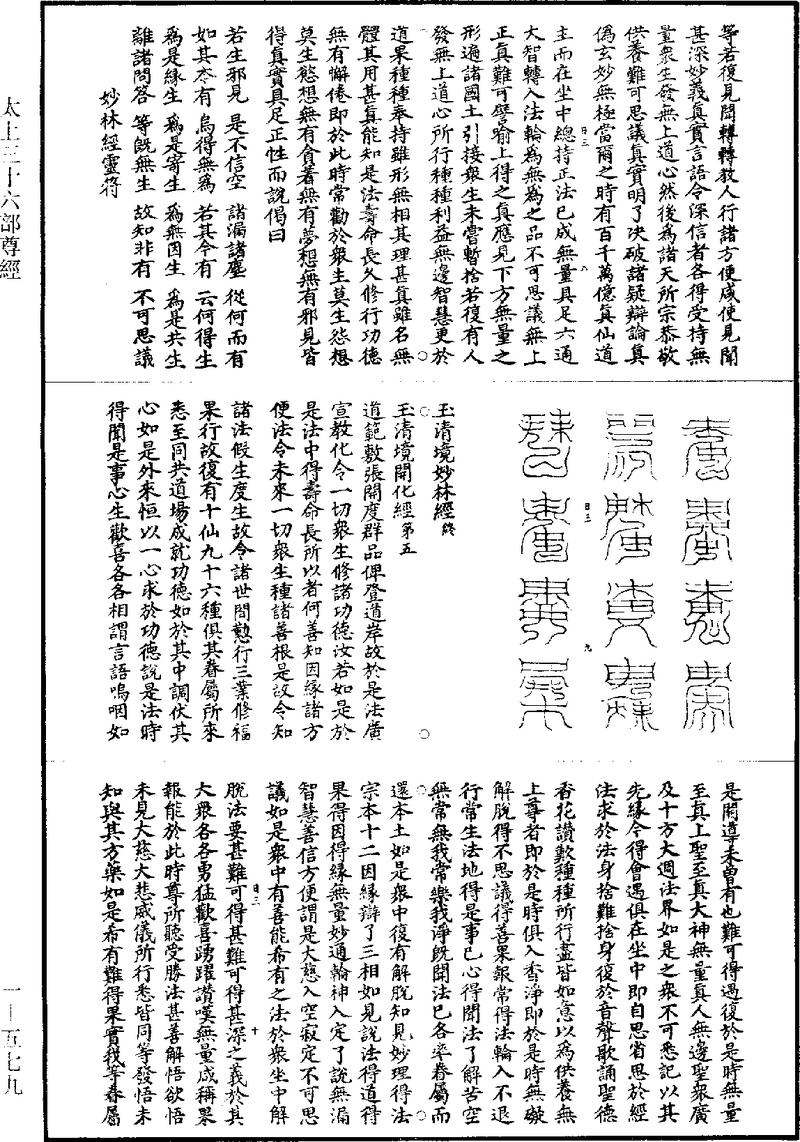 等若復見聞轉轉教人行諸方便咸使見聞
甚深妙義真實言語令深信者各得受持無
量衆生發無上道心然後為諸天所宗恭敬
供養難可思議真實明了決破諸疑辯論真
僞玄妙無極當爾之時有百千萬億真仙道
主而在坐中總持正法已成無量具足六通
大智轉入法輪為無為之品不可思議無上
正真難可譬喻上得之真應見下方無量之
形遍諸國土引接衆生未嘗暫捨若復有人
發無上道心所行種種利益無邊智慧更於
道果種種奉持雖形無相其理甚真雖名無
體其用甚真能知是法壽命長久修行功德
無有懈倦即於此時常勸於衆生莫生怨想
莫生慾想無有貪著無有夢想無有邪見皆
得真實具足正性而說偈曰
若生邪見 是不信空 諸漏諸塵 從何而有
如其本有 烏得無為 若其今有 云何得生
為是緣生 為是寄生 為無因生 為是共生
離諸問答 等旣無生 故知非有 不可思議
妙林經靈符
玉清境妙林經終
玉清境開化經第五
道範敷張開度群品俾登道岸故於是法廣
宣教化令一切衆生修諸功德汝若如是於
是法中得壽命長所以者何善知因緣諸方
便法令未來一切衆生種諸善根是故令知
諸法假生度生故令諸世間懃行三業修福
果行故復有十仙九十六種俱其眷屬所來
悉至同共道場成就功德如於其中調伏其
心如是外來恒以一心求於功德說是法時
得聞是事心生歡喜各各相謂言語嗚咽如
是開導未曾有也難可得遇復於是時無量
至真上聖至真大神無量真人無邊聖衆廣
及十方大週法界如是之衆不可悉記以其
先緣令得會遇俱在坐中即自思省思於經
法求於法身捨難捨身復於音聲歌誦聖德
香花讚歎種種所行盡皆如意以為供養無
上尊者即於是時俱入香淨即於是時無礙
解脫得不思議得善果報常得法輪入不退
行常生法地得是事已心得聞法了解苦空
無常無我常樂我淨旣聞法已各率眷屬而
還本土如是衆中復有解脫知見妙理得法
宗本十二因緣辯了三相如見說法得道得
果得因得緣無量妙通輪神入定了說無漏
智慧善信方便謂是大慈入空寂定不可思
議如是衆中有善能希有之法於衆坐中解
脫法要甚難可得甚難可得甚深之義於其
大衆各各勇猛歡喜踴躍讚嘆無量咸稱果
報能於此時尊所聽受勝法甚善解悟欲悟
未見大慈大悲威儀所行悉皆同等發悟未
知與其方藥如是希有難得果實我等眷屬
太上三十六部尊經
一—五七九